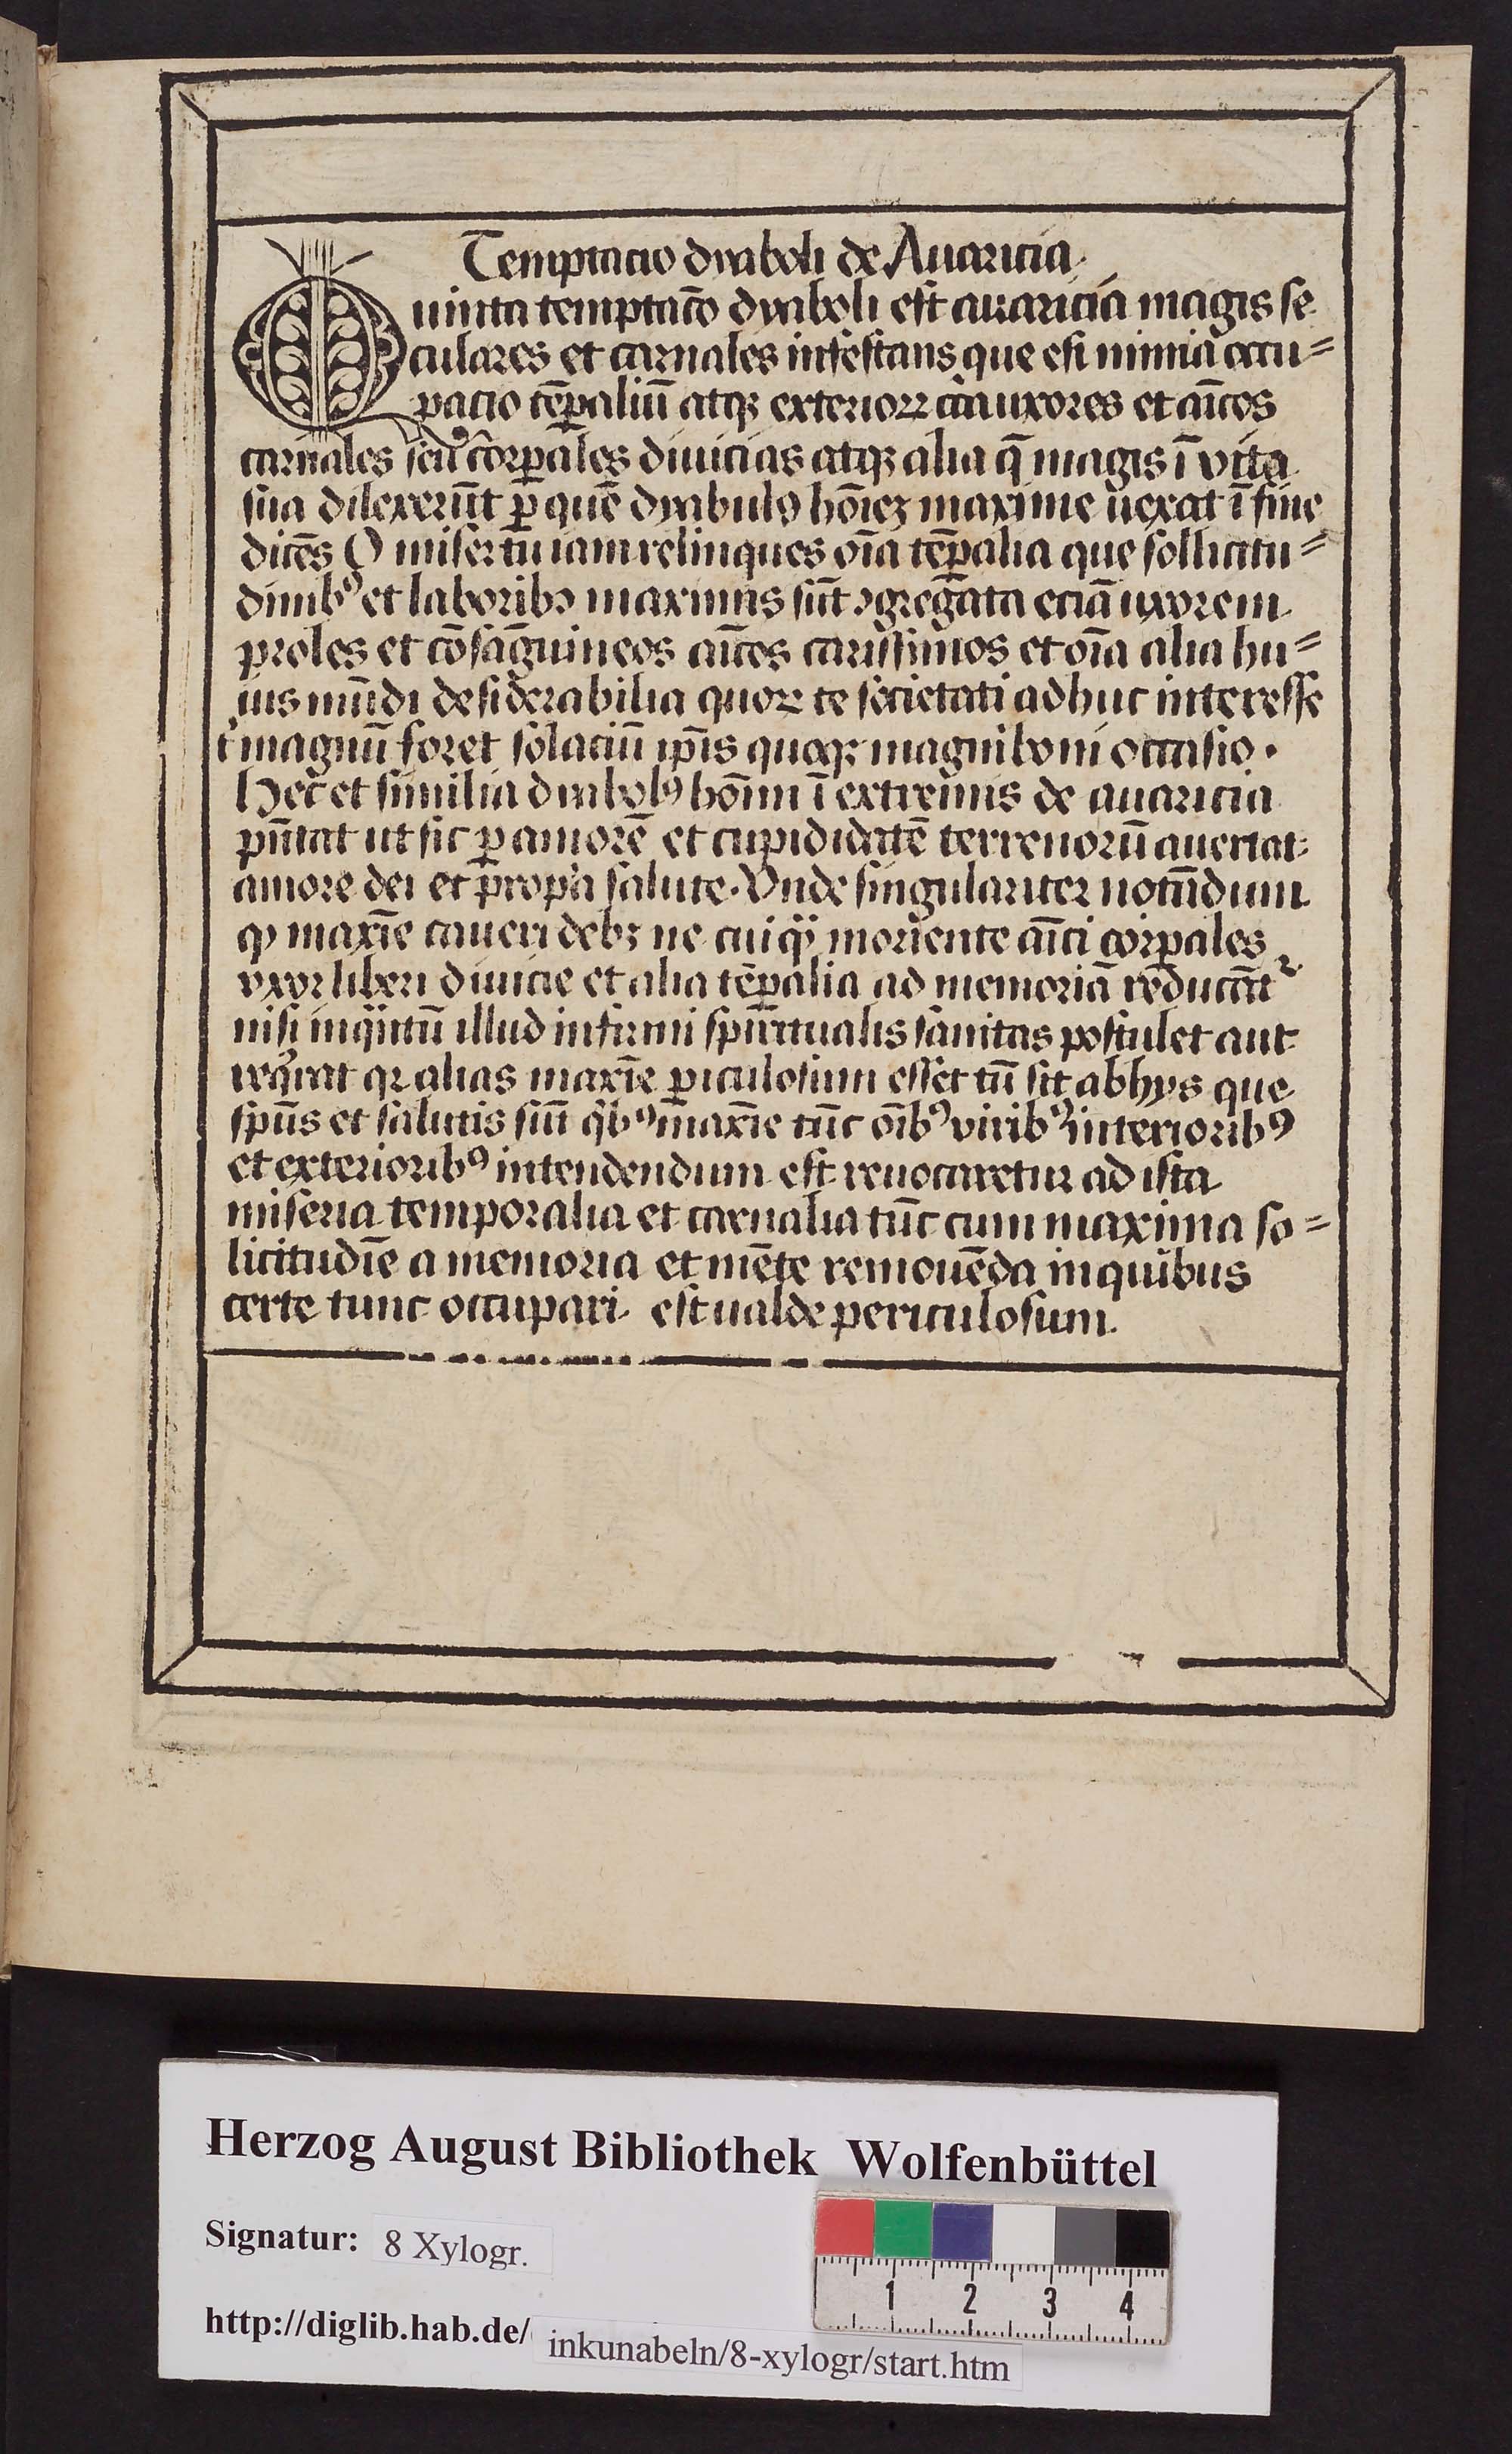 Temptacio dyaboli de Auaricia.
Quinta temptac̄o dyaboli est auaricia magis se
culares et carnales infestans que est nimia occu=
pacio tēp̲aliū atqꝫ exterioꝝ circa uxores et aīcos
carnales seu corp̲ales diuicias atqꝫ alia q̄ magis ī vita
sua dilexerūt p̲ quē dyabulꝰ hōīeꝫ maxime uexat ī fine
dicēs O miser tu iam relinques oīa tēp̲alia que sollicitu=
dinibꝰ et laboribꝰ maximis sūt ꝯgregata eciā uxorem
proles et cōsāguineos aīcos carissimos et oīa alia hu=
ius mūdi desiderabilia quoꝝ te societati adhuc interesse
t' magnū foret solaciū ip̄is quoqꝫ magni boni occasio.
Hec et similia dyabolꝰ hōīni ī extremis de auaricia
p̄ntat ut sic p̲ amorē et cupididatē terrenorū auertat=
amore dei et propria salute. Vnde singulariter notādum
ꝙ maxīe caueri debꝫ ne cuiq̄ moriente aīci corp̲ales
vxor liberi diuicie et alia tēp̲alia ad memoriā reducāt
nisi inq̄ntū illud infirmi sp̄iritualis sanitas postulet aut
reqͥrat qꝛ alias maxīe p̲iculosum esset tū sit ab hys que
sp̄us et salutis sūt qͥbꝰ maxīe tūc oībꝰ viribꝰ interioribꝰ
et exterioribꝰ intendendum est reuocaretur ad ista
miseria temporalia et carnalia tūc cum maxima so=
licitudīe a memoria et mēte remouēda in quibus
certe tunc occupari est ualde periculosum.
Herzog August Bibliothek Wolfenbüttel
Signatur: 8 Xylogr.
1 2 3 4
http://diglib.hab.de/ inkunabeln/8-xylogr/start.htm